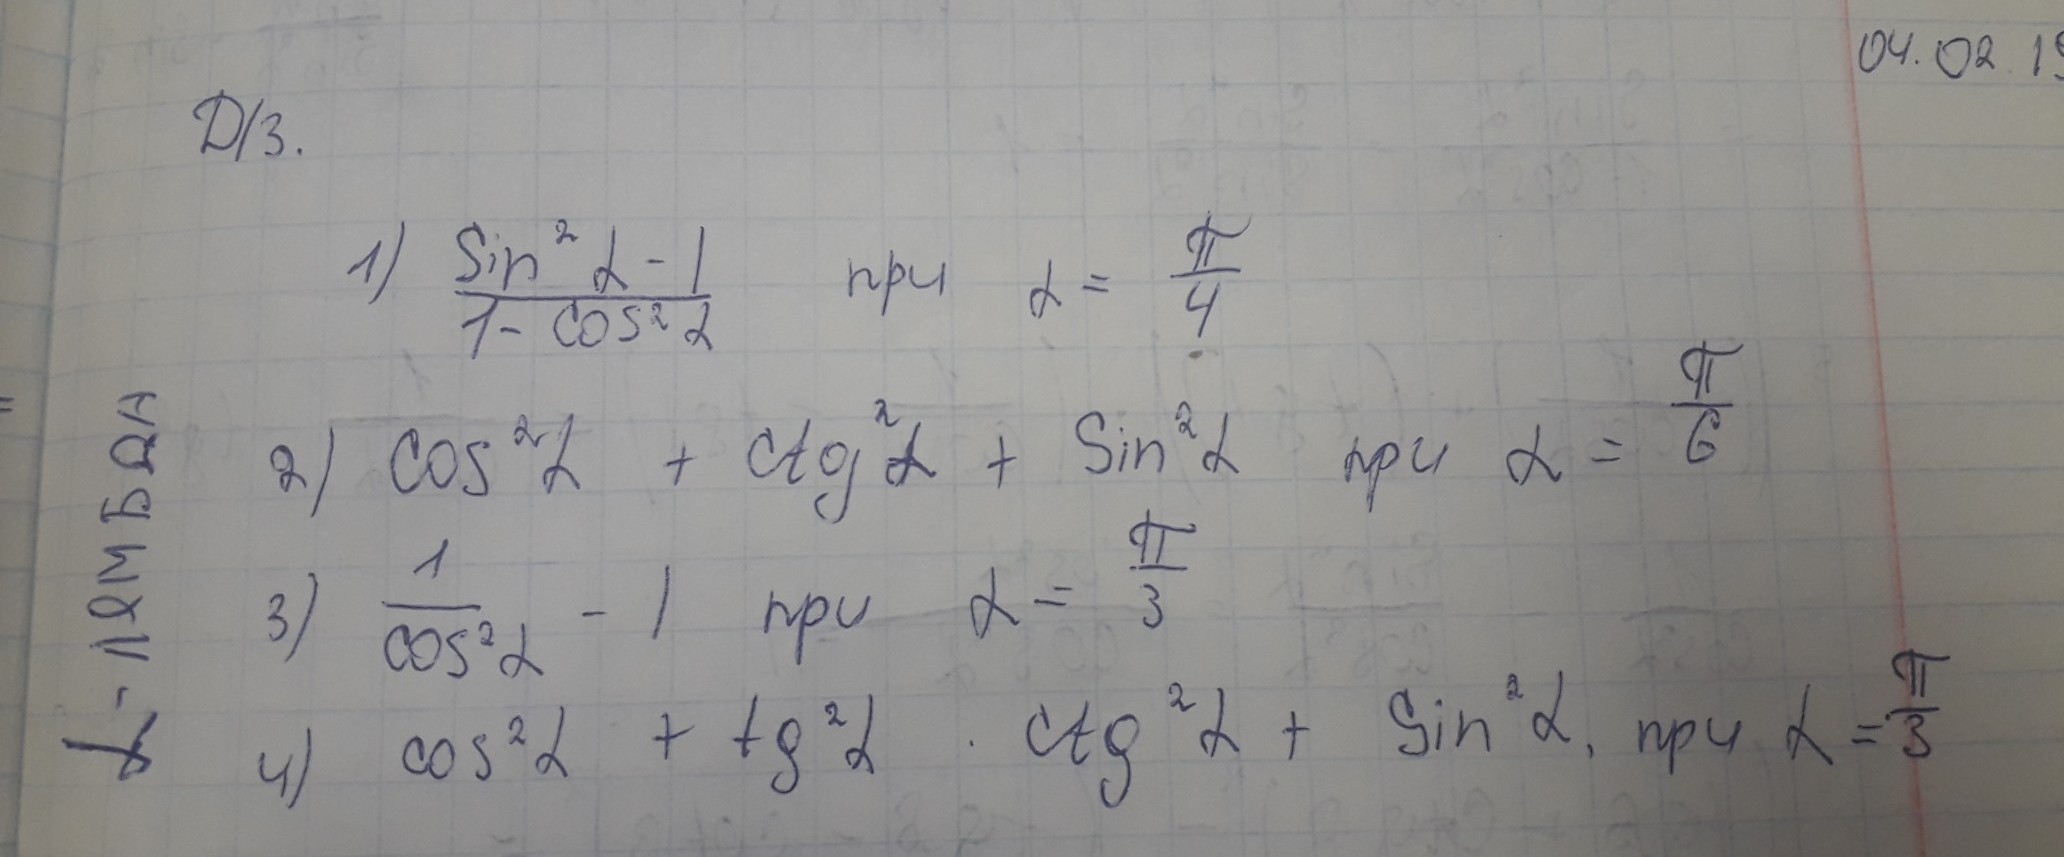 04.02.19
Д/З.
1) (Sin² α - 1)/(1 - cos² α) при α = π/4
2) Cos² α + ctg² α + Sin² α при α = π/6
3) 1/cos² α - 1 при α = π/3
4) cos² α + tg² α · ctg² α + Sin² α, при α = π/3
α - лямбда